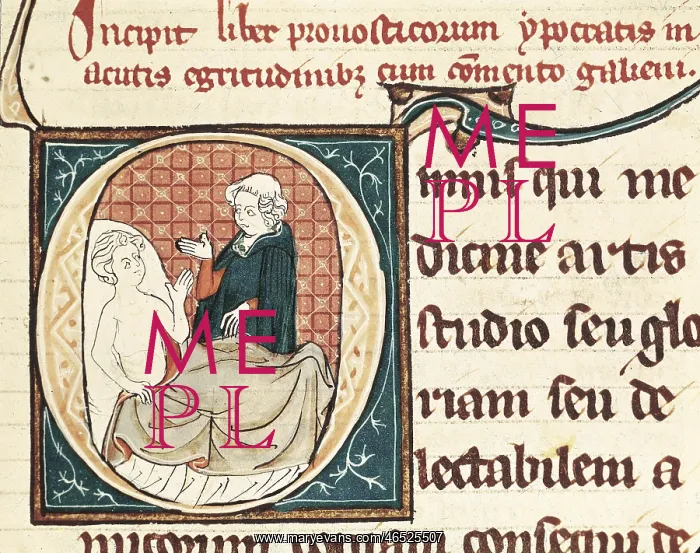 Incipit liber pronosticorum ypocratis in
acutis egritudinibȝ cum cōmento galieni.
O
mnis qui me
dicine artis
studio seu glo
riam seu de
lectabilem a
micorum consequi de
ME
PL
ME
PL
www.maryevans.com/46525507